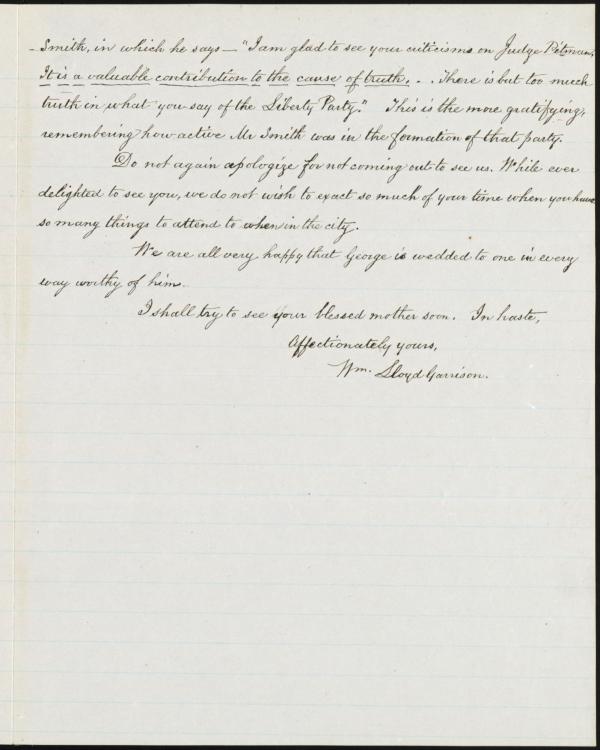 - Smith, in which he says — "I am glad to see your criticisms on Judge Pitman,
It is a valuable contribution to the cause of truth. . . There is but too much
truth in what you say of the Liberty Party." This is the more gratifying,
remembering how active Mr Smith was in the formation of that party.
Do not again apologize for not coming out to see us. While ever
delighted to see you, we do not wish to exact so much of your time when you have
so many things to attend to when in the city.
We are all very happy that George is wedded to one in every
way worthy of him.
I shall try to see your blessed mother soon. In haste,
Affectionately yours,
Wm. Lloyd Garrison.